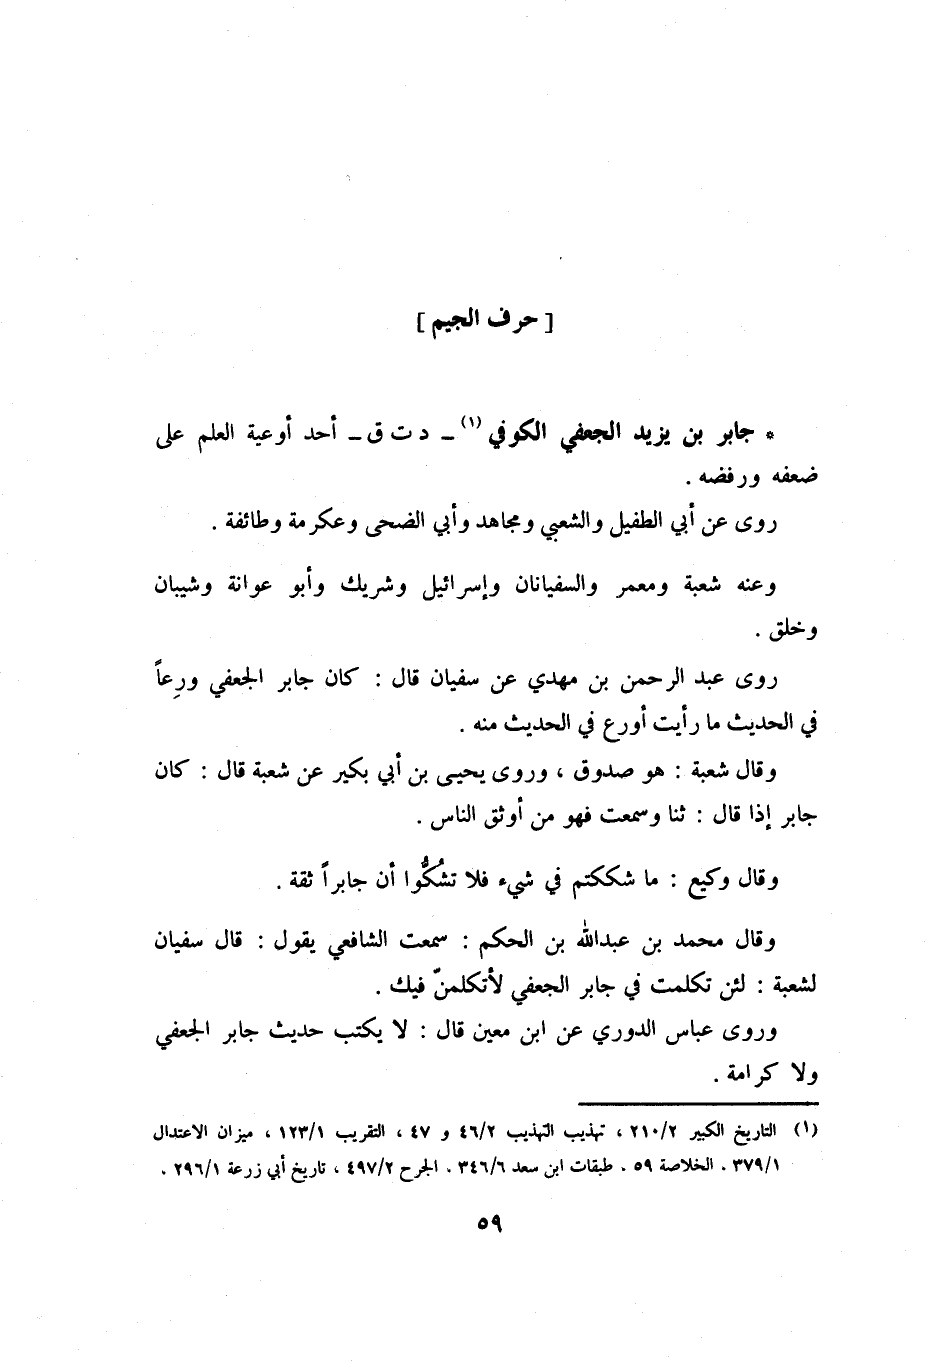 [ حرف الجيم ]
* جابر بن يزيد الجعفي الكوفي (١) ـ د ت ق ـ أحد أوعية العلم على
ضعفه ورفضه .
روى عن أبي الطفيل والشعبي ومجاهد وأبي الضحى وعكرمة وطائفة .
وعنه شعبة ومعمر والسفيانان وإسرائيل وشريك وأبو عوانة وشيبان
وخلق .
روى عبد الرحمن بن مهدي عن سفيان قال : كان جابر الجعفي ورِعاً
في الحديث ما رأيت أورع في الحديث منه .
وقال شعبة : هو صدوق ، وروى يحيى بن أبي بكير عن شعبة قال : كان
جابر إذا قال : ثنا وسمعت فهو من أوثق الناس .
وقال وكيع : ما شككتم في شيء فلا تشُكُّوا أن جابراً ثقة .
وقال محمد بن عبدالله بن الحكم : سمعت الشافعي يقول : قال سفيان
لشعبة : لئن تكلمت في جابر الجعفي لأتكلمنّ فيك .
وروى عباس الدوري عن ابن معين قال : لا يكتب حديث جابر الجعفي
ولا كرامة .
(١) التاريخ الكبير ٢١٠/٢ ، تهذيب التهذيب ٤٦/٢ و ٤٧ ، التقريب ١٢٣/١ ، ميزان الاعتدال
٣٧٩/١ . الخلاصة ٥٩ . طبقات ابن سعد ٣٤٦/٦ . الجرح ٤٩٧/٢ ، تاريخ أبي زرعة ٢٩٦/١ .
٥٩